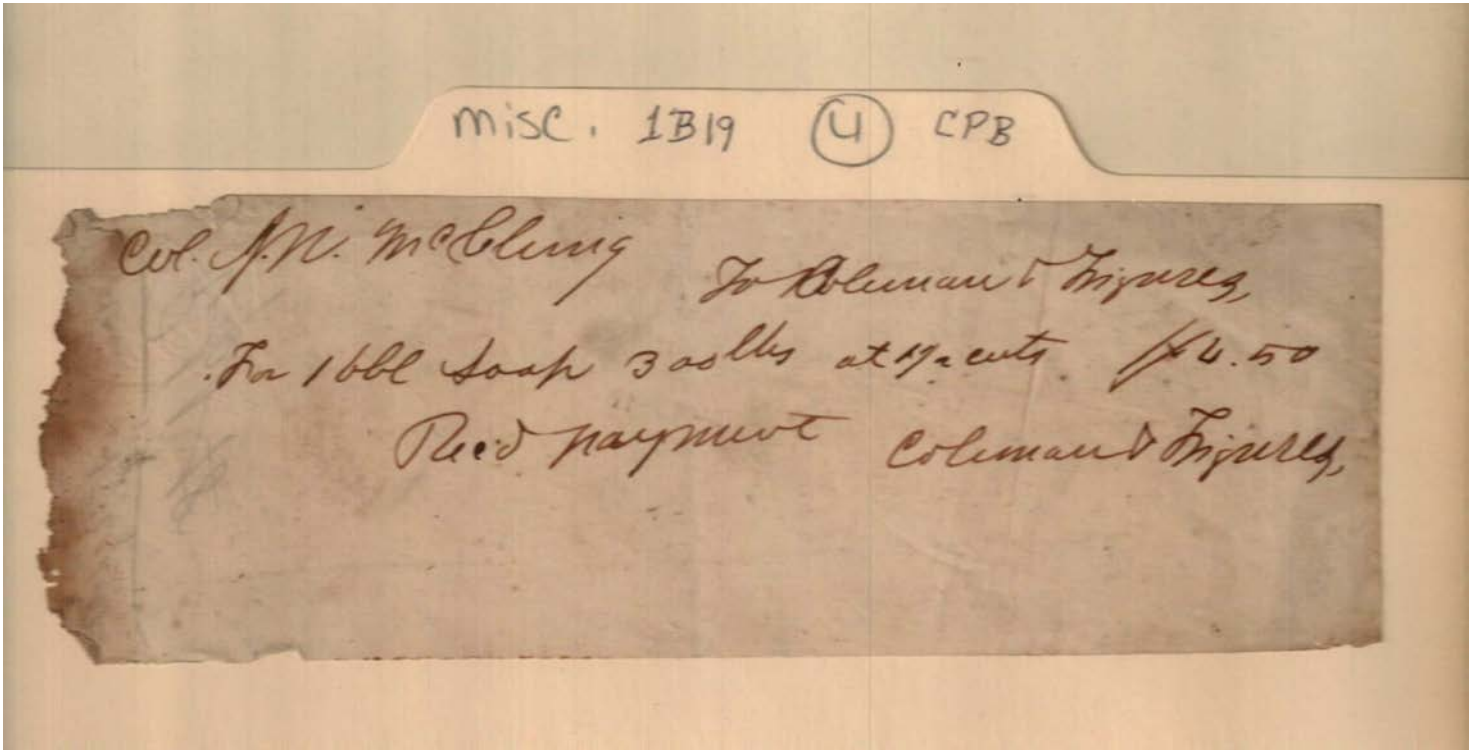 misc. 1B19 4 CPB
Col. J. W. McClung
To Coleman & Figures,
For 1 bbl Soap 300 lbs at 1½ cents $4.50
Rec'd payment Coleman & Figures,